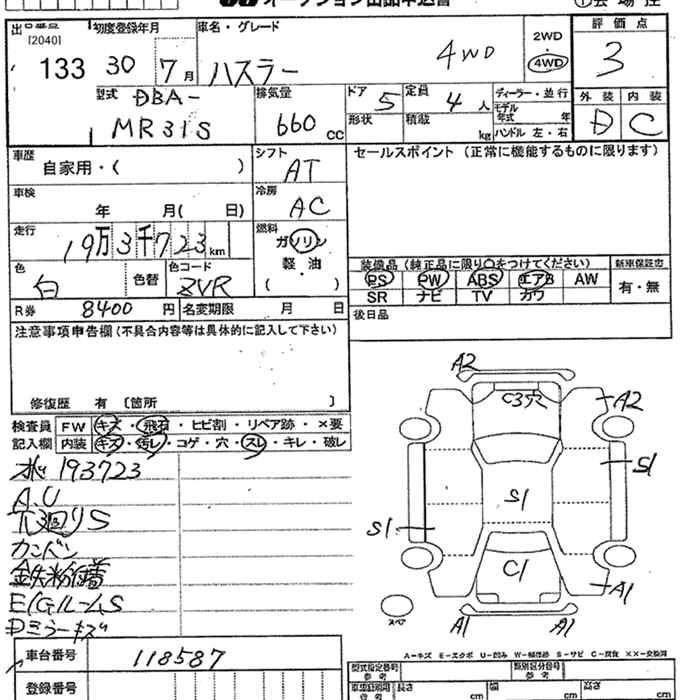 オークション出品申込書
①会場控
出品番号 初度登録年月 車名・グレード 2WD 評価点
[2040]
133 30 7月 ハスラー 4WD 4WD 3
型式 DBA- 排気量 ドア 5 定員 4人 ディーラー・並行 外装 内装
MR31S 660cc 形状 積載 kg モデル年式 年 D C
ハンドル 左・右
車歴 自家用・( ) シフト AT セールスポイント (正常に機能するものに限ります)
車検 年 月( 日) 冷房 AC
走行 19万3千723km 燃料 ガソリン
軽・油
( )
色 白 色替 色コード ZVR
装備品 (純正品に限り○をつけてください) 新車保証書
PS PW ABS エアB AW 有・無
SR ナビ TV カワ
R券 8400円 名変期限 月 日 後日品
注意事項申告欄 (不具合内容等は具体的に記入して下さい)
修復歴 有 〔箇所 〕
検査員 FW キズ・飛石・ヒビ割・リペア跡・×要
記入欄 内装 キズ・汚レ・コゲ・穴・スレ・キレ・破レ
193723
A.U
下廻りS
カンバン
鉄粉
E/GルームS
Dミラーキズ
A2
C3穴
A2
S1
S1
S1
C1
A1
A1
A1
スペア
A-キズ E-エクボ U-凹み W-補修跡 S-サビ C-腐食 ××-交換済
車台番号 118587
登録番号
型式指定番号 参考 類別区分番号 参考
車庫証明用 参考 長さ cm 幅 cm 高さ cm